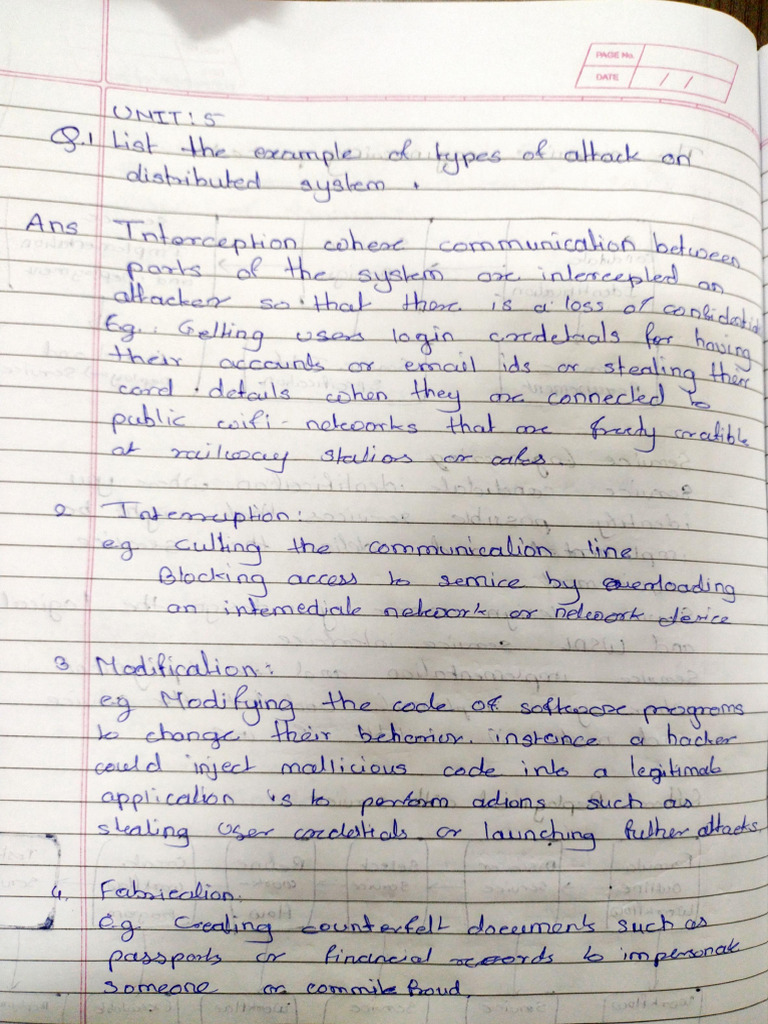 PAGE No.
DATE / /
UNIT: 5
Q.1 List the example of types of attack on
distributed system.
Ans Interception where communication between
parts of the system are intercepted an
attacker so that there is a loss of confidenti
Eg. Getting users login credetials for having
their accounts or email ids or stealing their
card details when they are connected to
public wifi-networks that are freely
at railway stations or cafes
2 Interruption:
eg cutting the communication line
Blocking access to service by overloading
an intemediate network or network device
3 Modification:
eg Modifying the code of software programs
to change their behavior. instance a hacker
could inject mallicious code into a legitimate
application is to perform actions such as
stealing user credestials or launching futher attacks.
4. Fabrication:
e.g. Creating counterfeit documents such as
passports or financial records to impersonate
someone or commite froud.